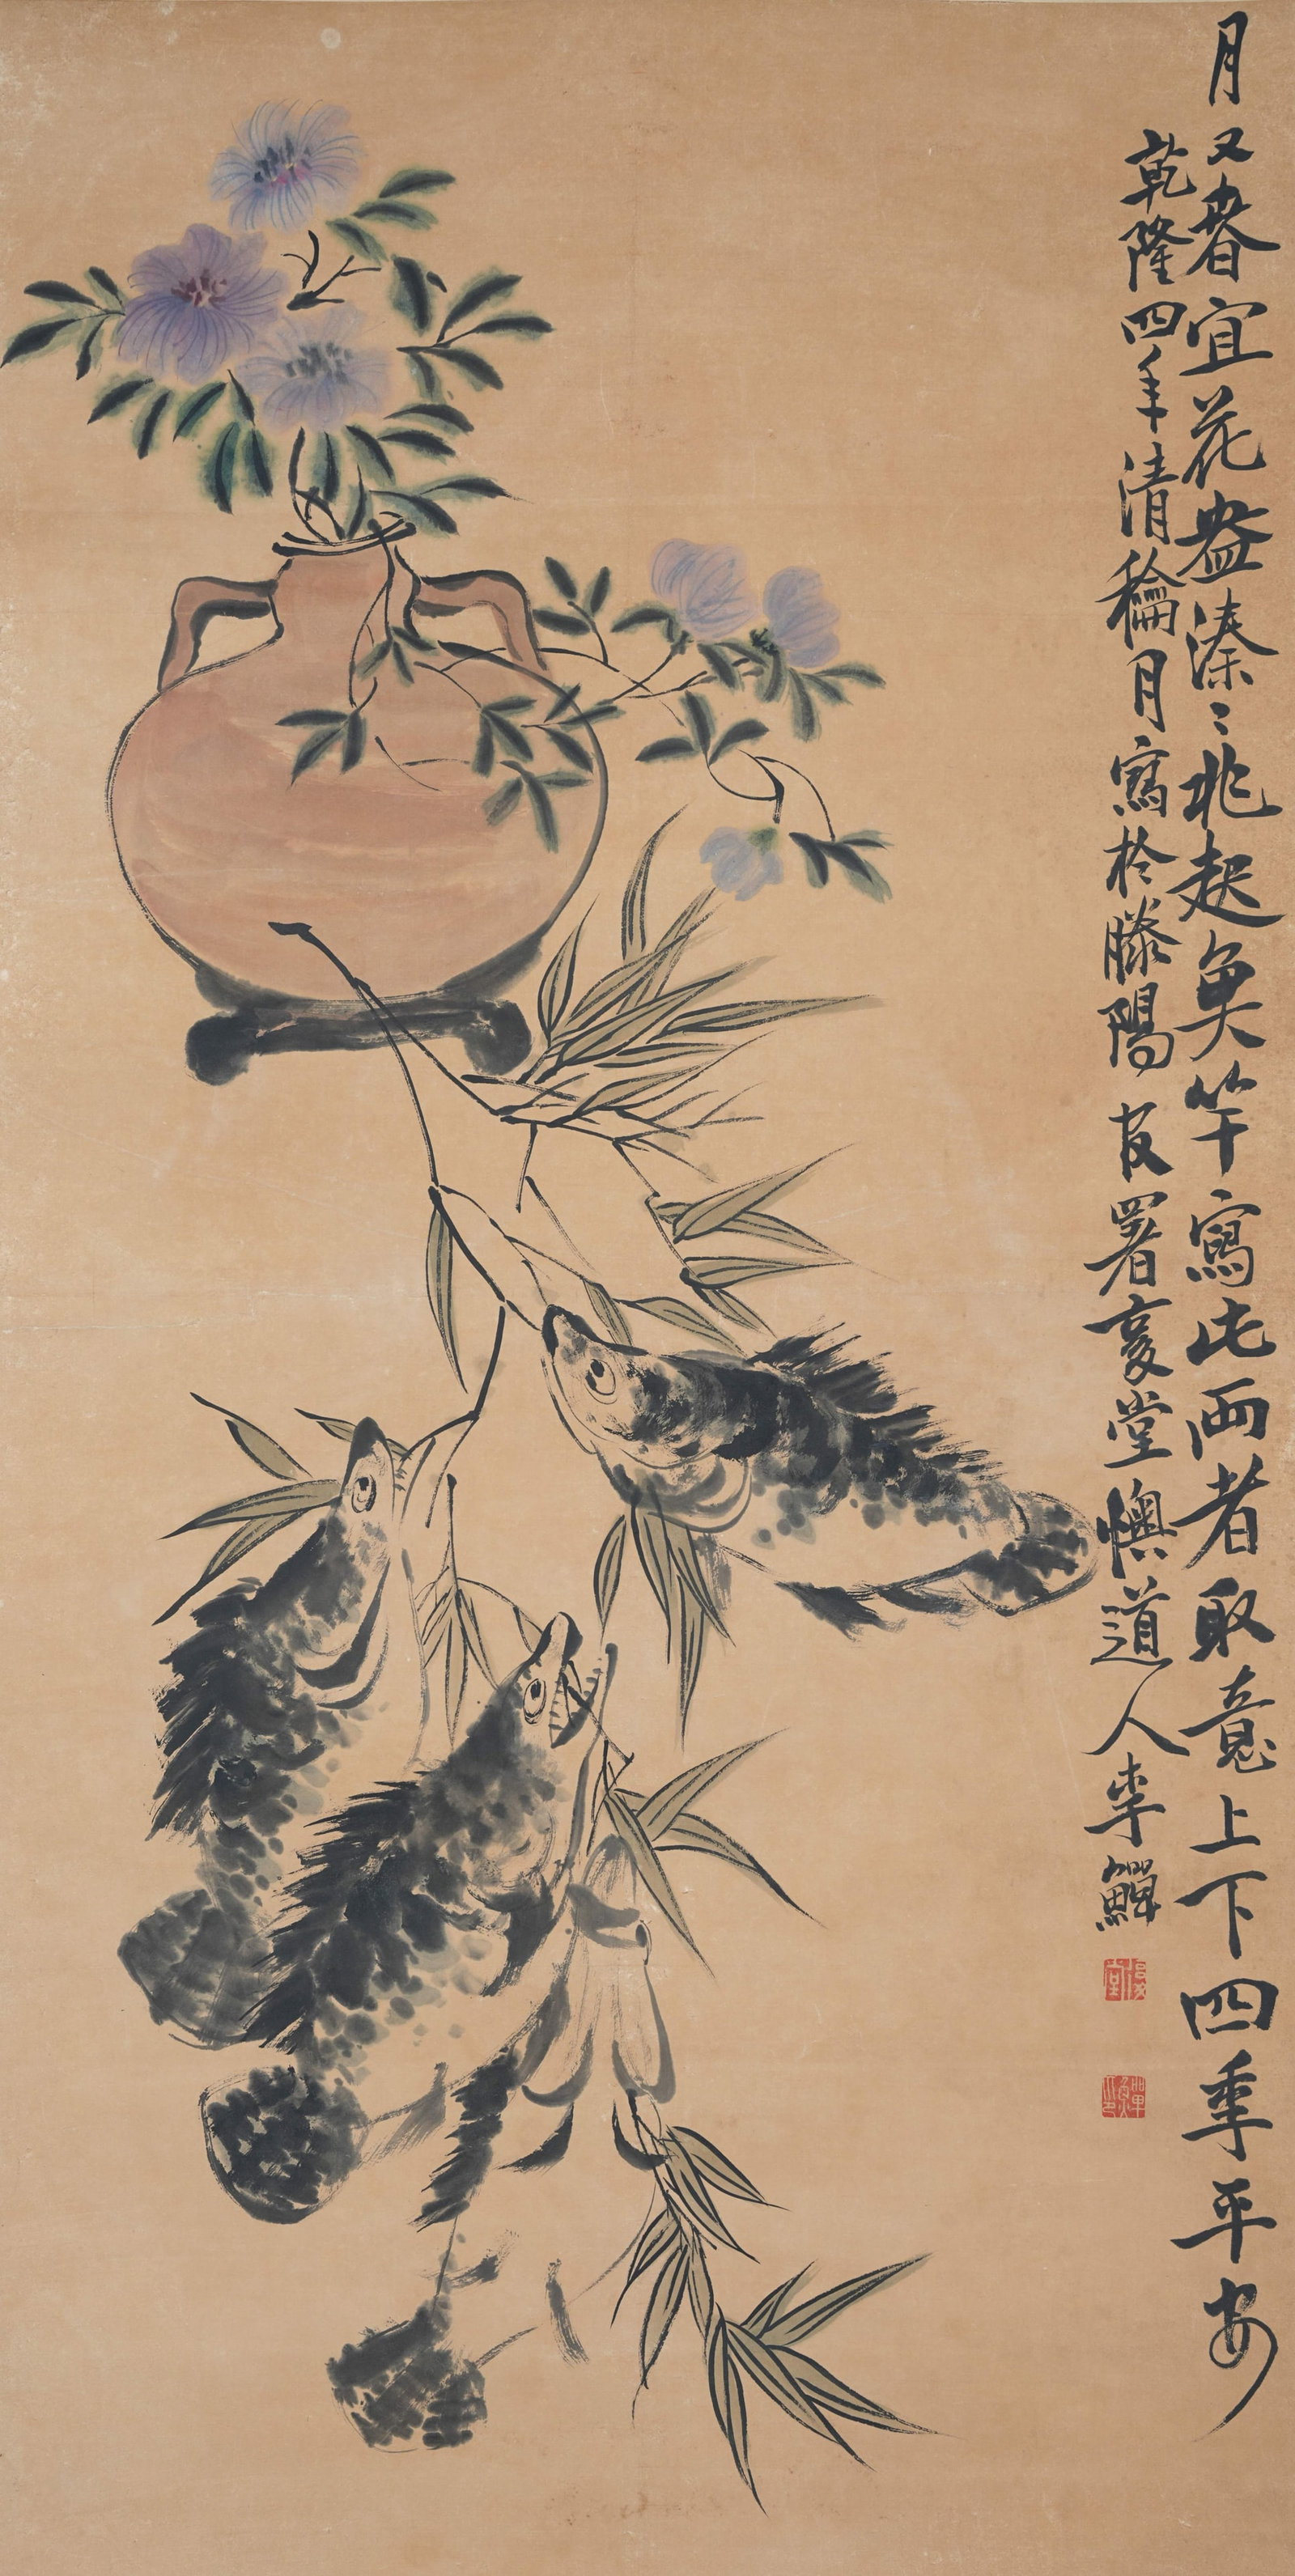 月又春宜花盎溱〻兆起魚竿寫此両者取意上下四季平安
乾隆四年清龢月寫於滕陽署复堂懊道人李鱓